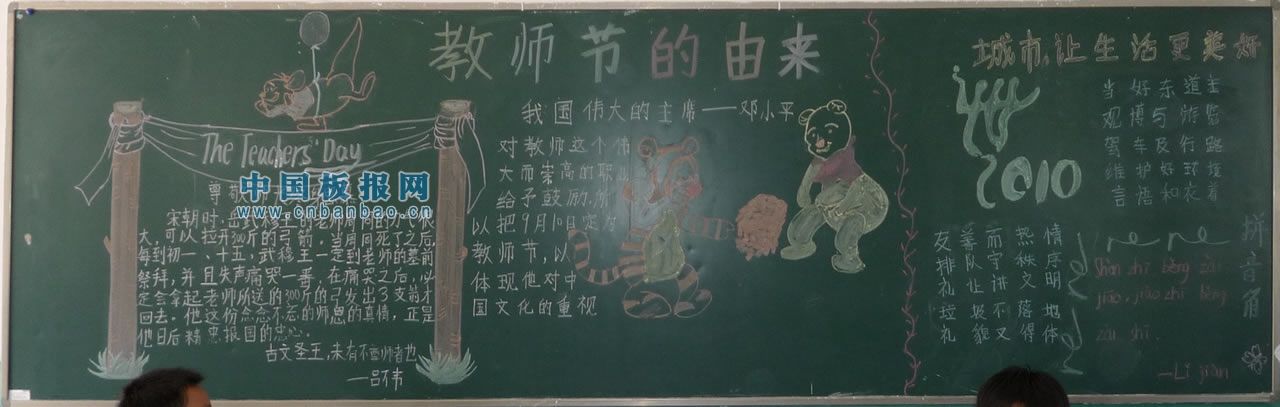 教师节的由来
The Teachers' Day
尊敬
中国板报网
www.cnbanbao.cn
宋朝时,岳武穆王的老师周同的力气很
大,可以拉开300斤的弓箭。当周同死了之后,
每到初一、十五,武穆王一定到老师的墓前
祭拜,并且失声痛哭一番。在痛哭之后,必
定会拿起老师所送的300斤的弓发出3支箭才
回去。他这份念念不忘的师恩的真情,正是
他日后精忠报国的忠心。
古文圣王,未有不尊师者也
—吕不韦
我国伟大的主席——邓小平
对教师这个伟
大而崇高的职业
给予鼓励,所
以把9月10日定为
教师节,以
体现他对中
国文化的重视
城市,让生活更美好
2010
当好东道主
观博与旅览
驾车及行路
维护好环境
言语和衣着
友善而热情
排队守秩序
礼让讲文明
垃圾不落地
礼貌又得体
拼音角
Shān zhī bèng zài
jiāo, jiāo zhī bèng
zài shī.
—Lí jiàn